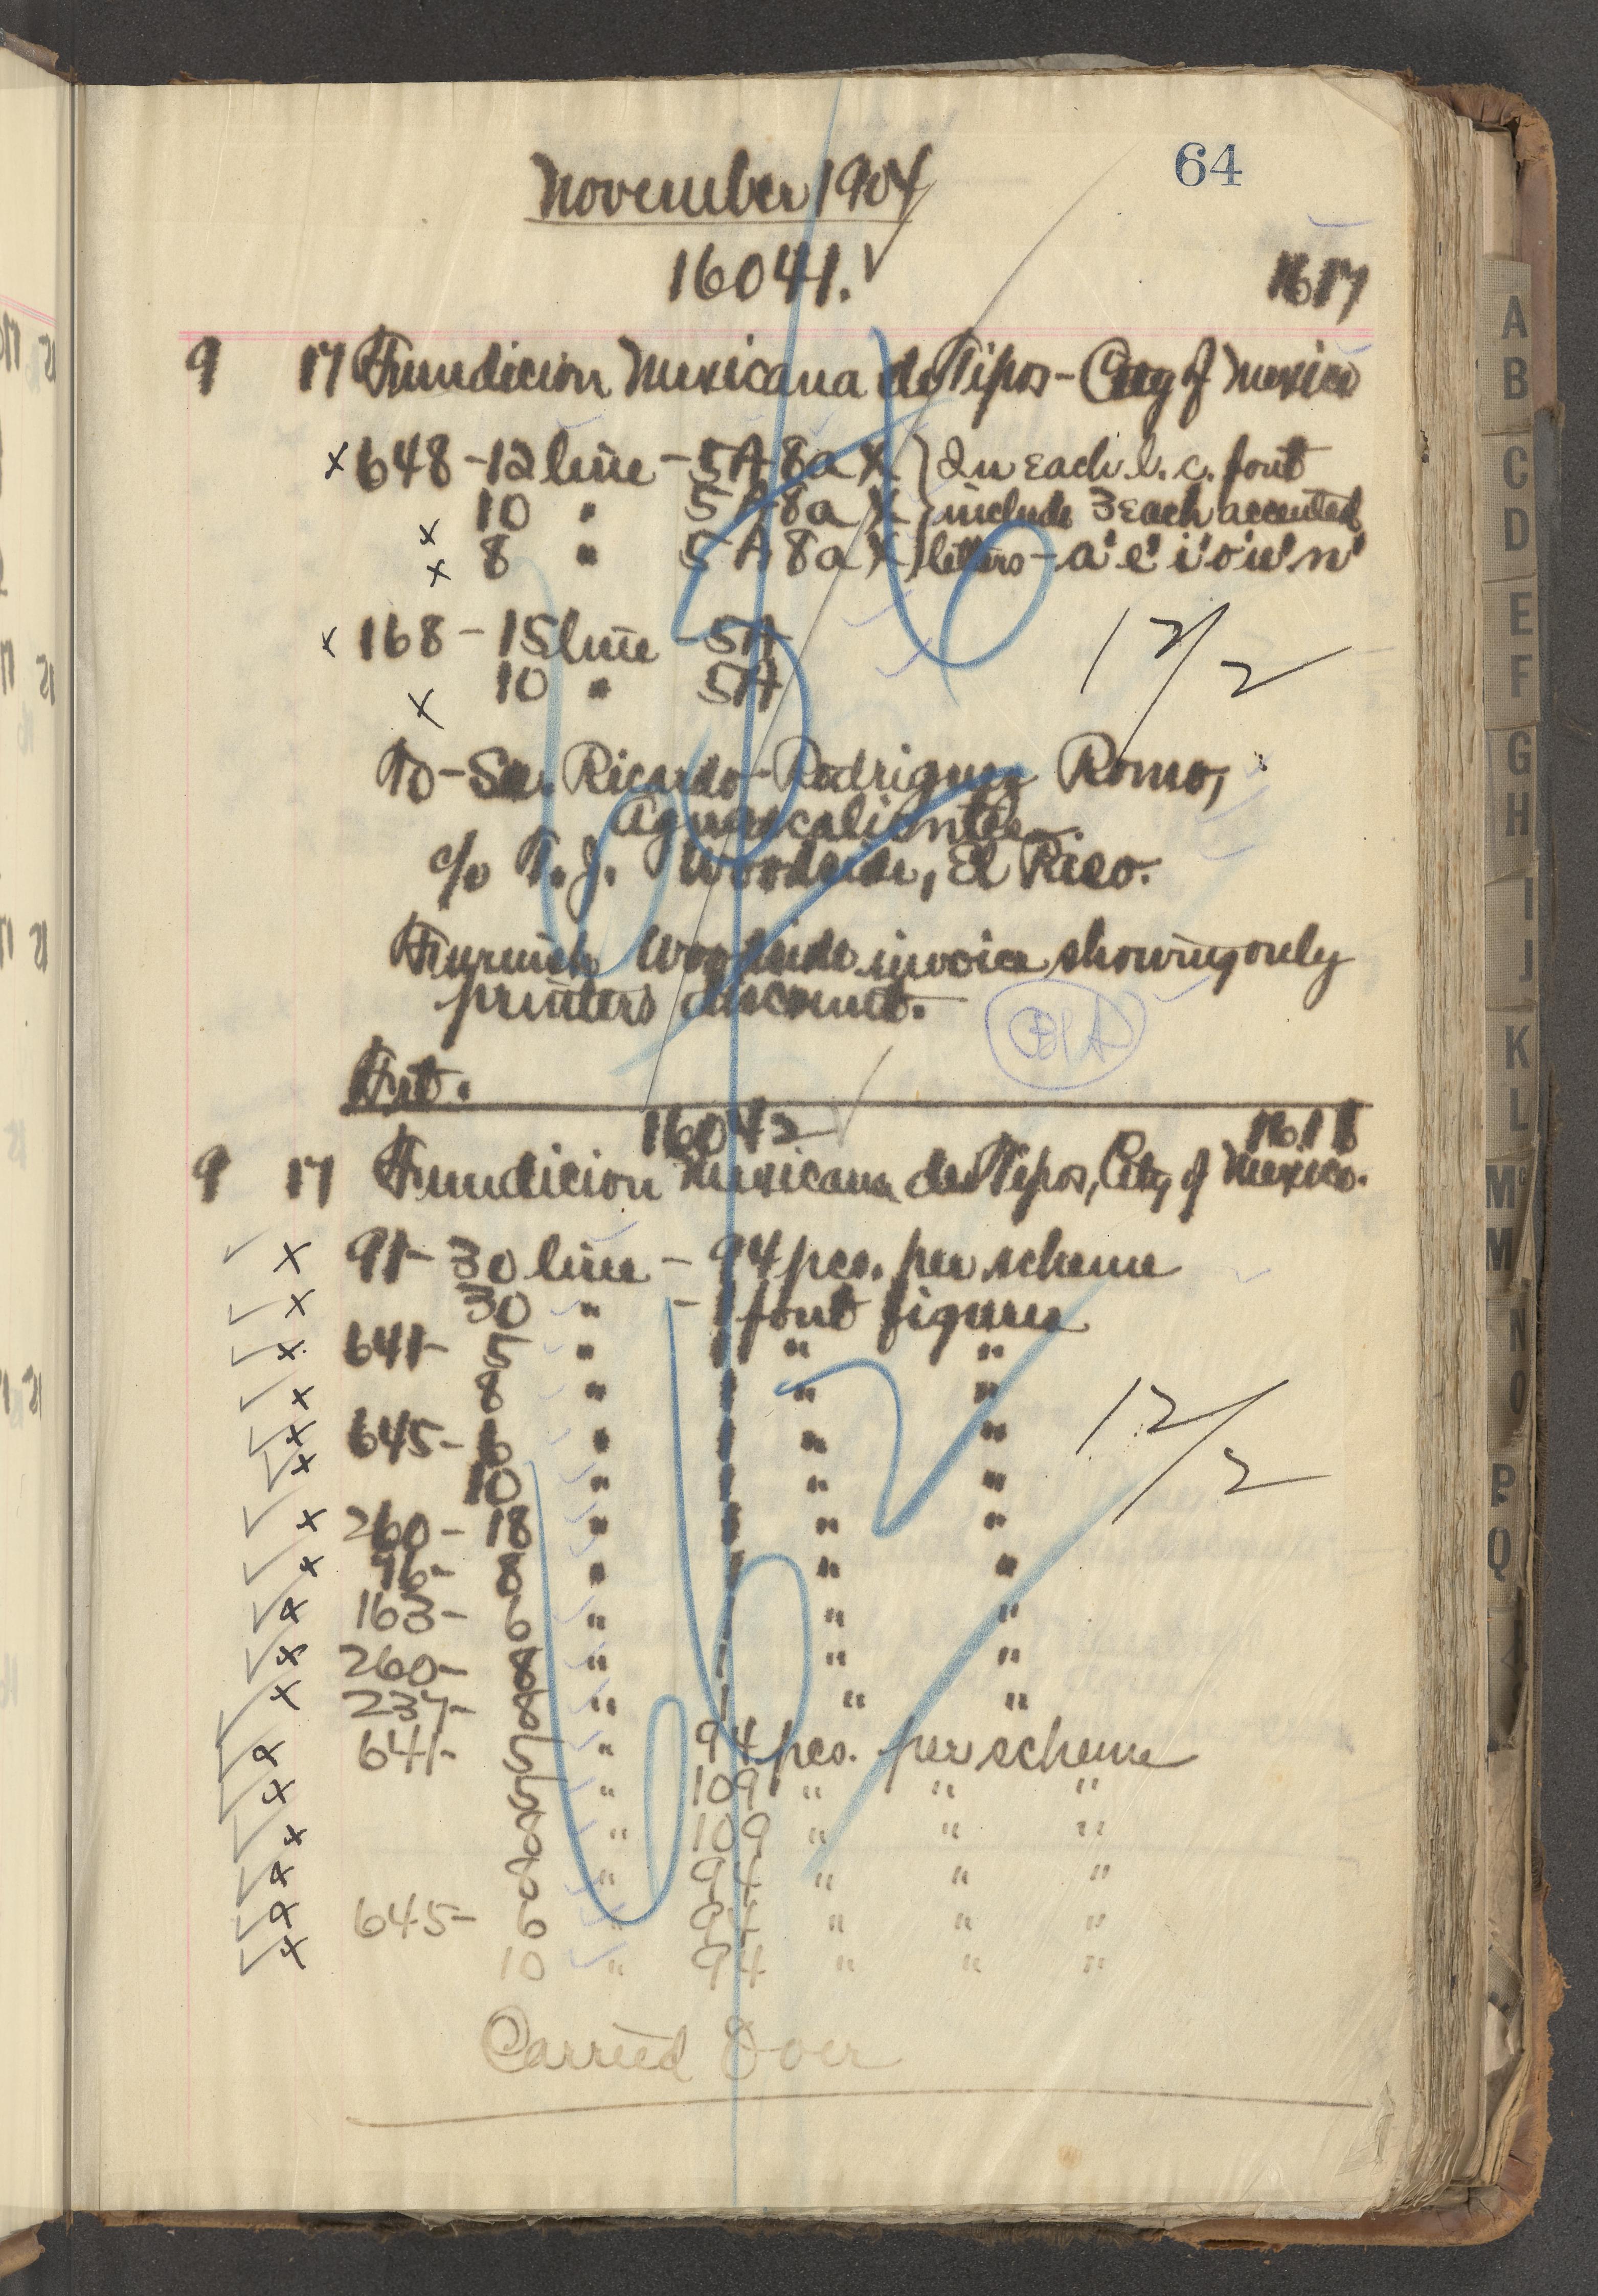 64
November 1904
16041. 1617
9 17 Fundicion Mexicana de Tipos - City of Mexico
x 648 - 12 line - 5A 8a x } In each l.c. font
x 10 " 5A 8a x } include 3 each accented
x 8 " 5A 8a x } letters - a' e' i' o' u' n'
x 168 - 15 line - 5A
x 10 " 5A
12/2
To - Sr. Ricardo Rodriguez Romo,
Aguascalientes
c/o T. J. Woodside, El Paso.
Furnish Woodside invoice showing only
printers discount.
Frt.
16042 1618
9 17 Fundicion Mexicana de Tipos, City of Mexico.
x 91 - 30 line - 94 pcs. per scheme
x 30 " - 1 font figures
x 641 - 5 " 1 " "
x 8 " 1 " "
x 645 - 6 " 1 " "
x 10 " 1 " "
12/2
x 260 - 18 " 1 " "
x 76 - 8 " 1 " "
x 163 - 6 " 1 " "
x 260 - 8 " 1 " "
x 237 - 8 " 1 " "
x 641 - 5 " 94 pcs. per scheme
x 5 " 109 " " "
x 8 " 109 " " "
x 8 " 94 " " "
x 645 - 6 " 94 " " "
x 10 " 94 " " "
Carried Over
A
B
C
D
E
F
G
H
I
J
K
L
Mc
M
N
O
P
Q